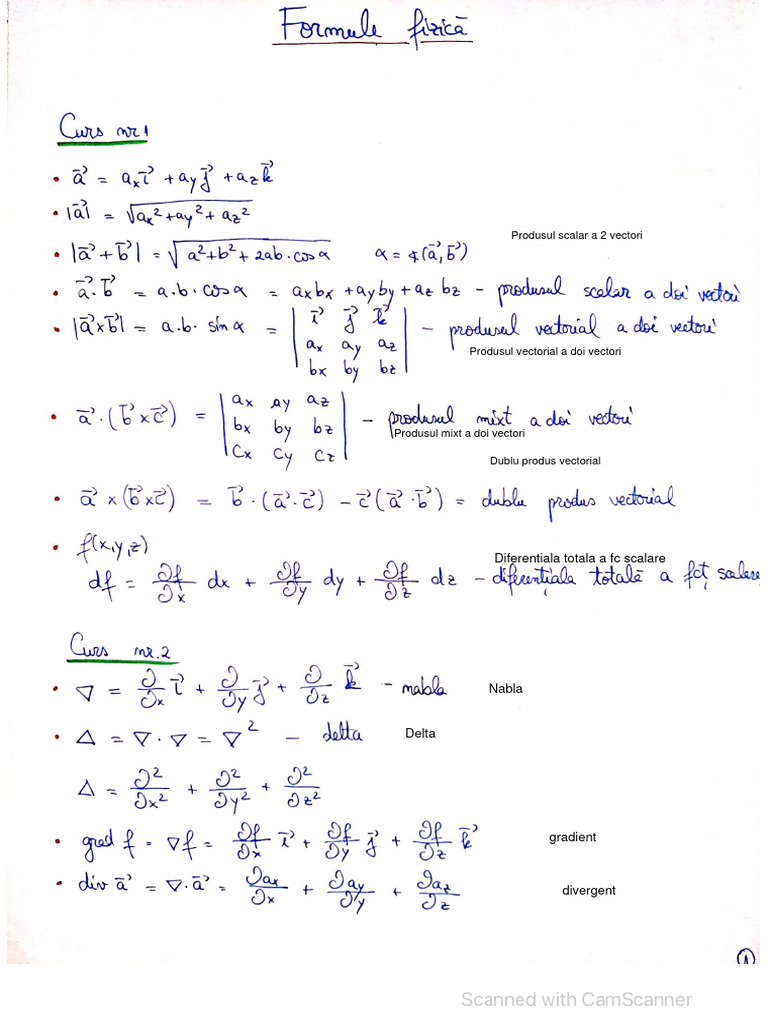 Formule fizică
Curs nr 1
• a⃗ = aₓi⃗ + a_y j⃗ + a_z k⃗
• |a⃗| = √(aₓ² + a_y² + a_z²)
Produsul scalar a 2 vectori
• |a⃗ + b⃗| = √(a² + b² + 2ab · cos α)   α = ∢(a⃗, b⃗)
• a⃗ · b⃗ = a · b · cos α = aₓbₓ + a_y b_y + a_z b_z – produsul scalar a doi vectori
• |a⃗ × b⃗| = a · b · sin α = | i⃗ j⃗ k⃗ | – produsul vectorial a doi vectori
| aₓ a_y a_z |
Produsul vectorial a doi vectori
| bₓ b_y b_z |
• a⃗ · (b⃗ × c⃗) = | aₓ a_y a_z | – produsul mixt a doi vectori
| bₓ b_y b_z |
Produsul mixt a doi vectori
| cₓ c_y c_z |
Dublu produs vectorial
• a⃗ × (b⃗ × c⃗) = b⃗ · (a⃗ · c⃗) – c⃗ (a⃗ · b⃗) = dublu produs vectorial
• f(x, y, z)
Diferentiala totala a fc scalare
df = ∂f/∂x dx + ∂f/∂y dy + ∂f/∂z dz – diferențiala totală a fcț scalare
Curs nr. 2
• ∇ = ∂/∂x i⃗ + ∂/∂y j⃗ + ∂/∂z k⃗ – nabla
Nabla
• Δ = ∇ · ∇ = ∇² – delta
Delta
Δ = ∂²/∂x² + ∂²/∂y² + ∂²/∂z²
• grad f = ∇f = ∂f/∂x i⃗ + ∂f/∂y j⃗ + ∂f/∂z k⃗
gradient
• div a⃗ = ∇ · a⃗ = ∂aₓ/∂x + ∂a_y/∂y + ∂a_z/∂z
divergent
1
Scanned with CamScanner